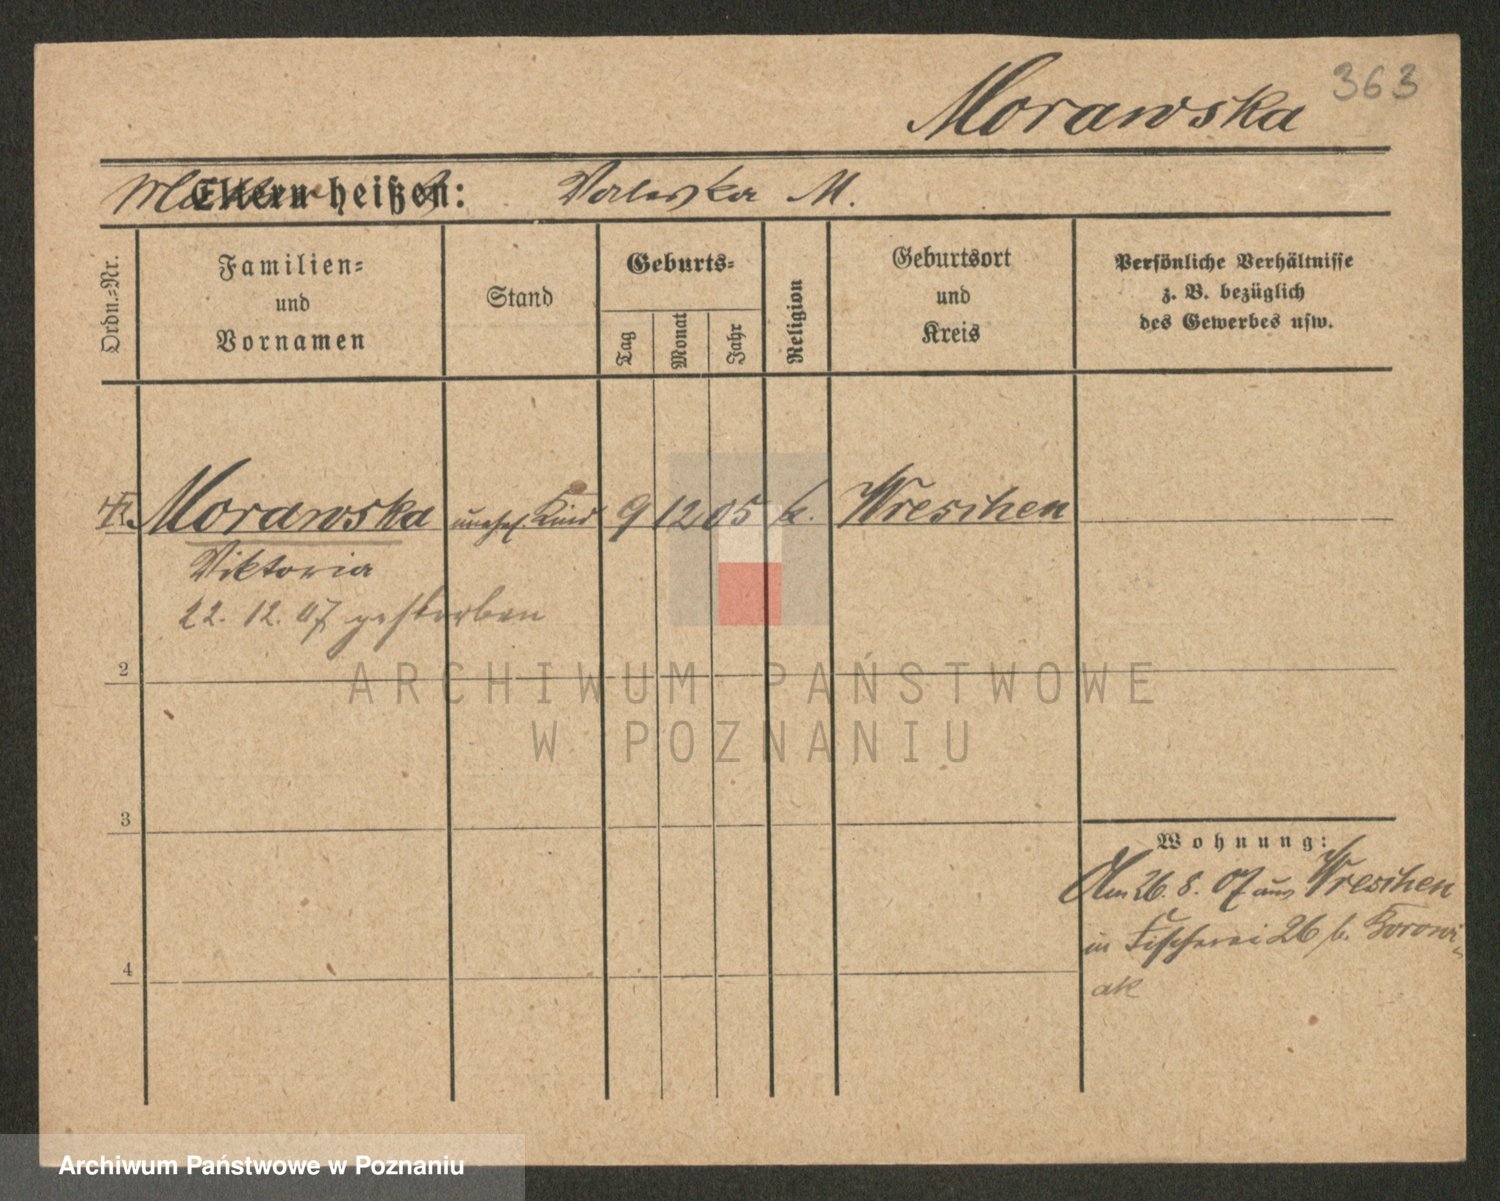 363
Morawska
Eltern heißen: Valeska M.
Ordn.-Nr.
Familien-
und
Vornamen
Stand
Geburts-
Tag
Monat
Jahr
Religion
Geburtsort
und
Kreis
Persönliche Verhältnisse
z. B. bezüglich
des Gewerbes usw.
Morawska unehel Kind 9 12 05 k. Wreschen
Viktoria
22. 12. 07 gestorben
2
3
4
Wohnung:
Am 26. 8. 07 aus Wreschen
in Fischerei 26 b. Borowi-
ak
ARCHIWUM PAŃSTWOWE
W POZNANIU
Archiwum Państwowe w Poznaniu